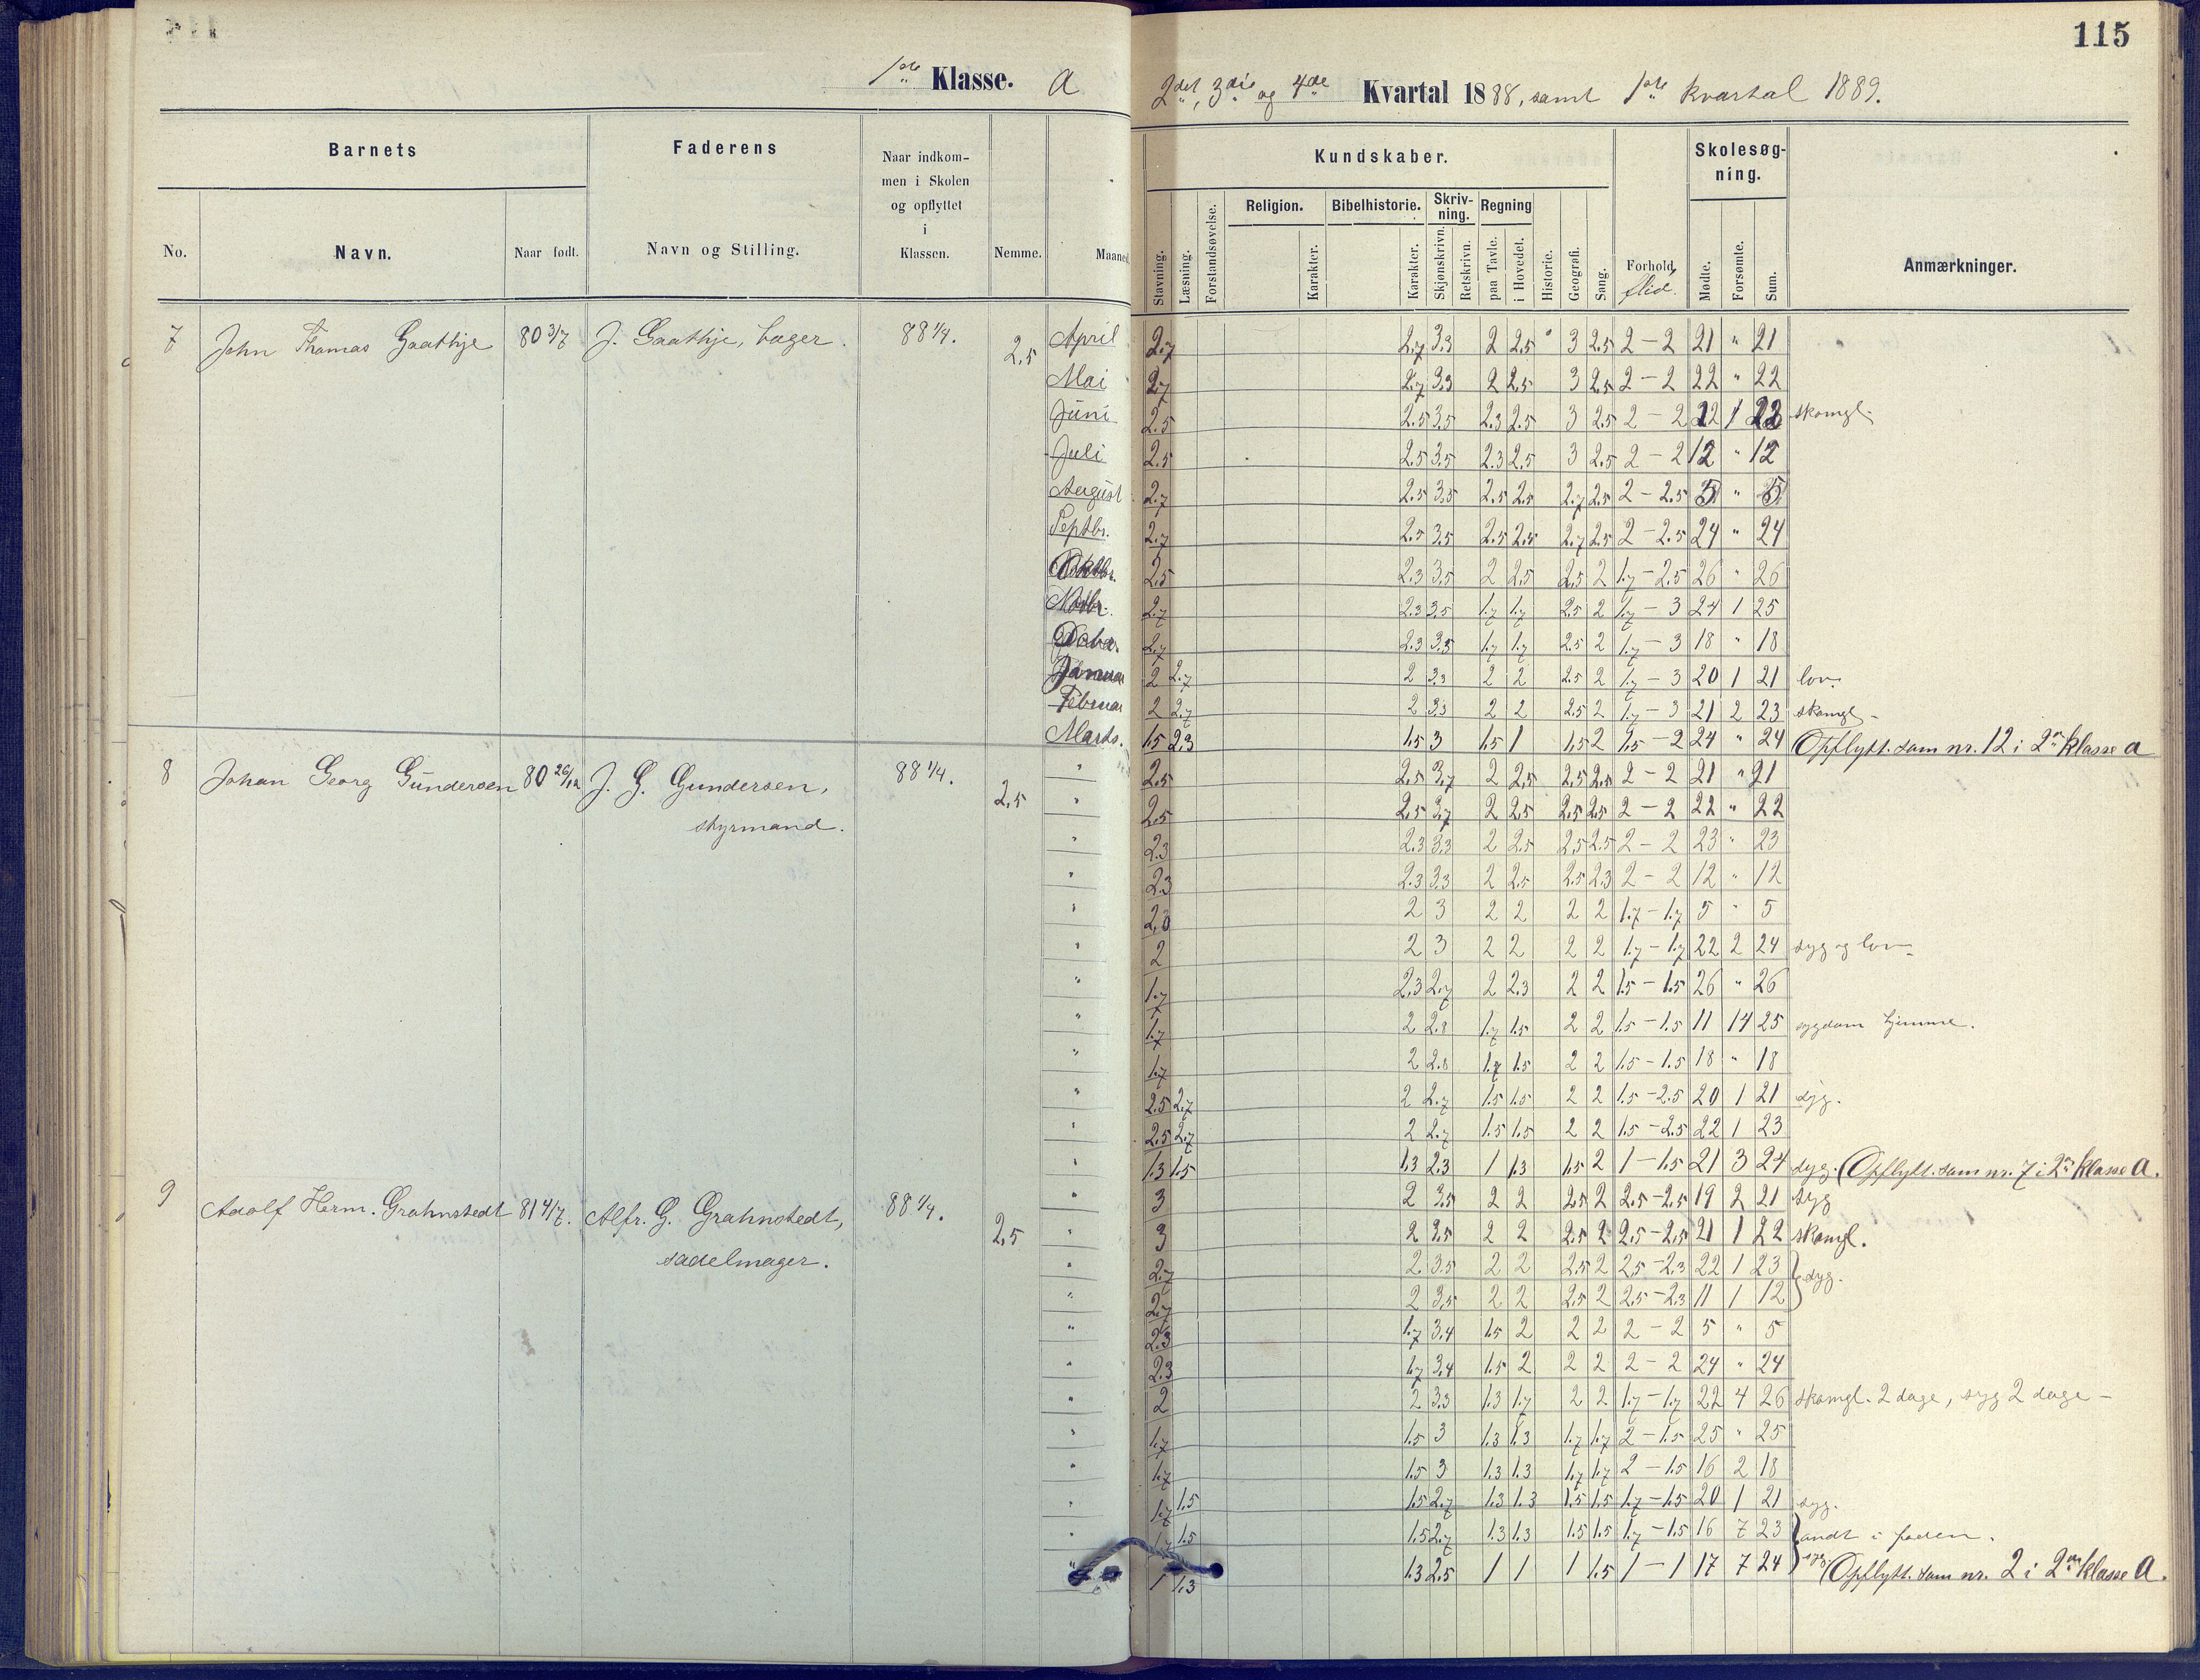 115
1ste Klasse. A
2det, 3die og 4de Kvartal 1888, samt 1ste kvartal 1889.
Barnets
Faderens
Naar indkommen i Skolen og opflyttet i Klassen.
Nemme.
Maaned
Kundskaber.
Skolesøgning.
No.
Navn.
Naar født.
Navn og Stilling.
Stavning.
Læsning.
Forstandsøvelse.
Religion.
Karakter.
Bibelhistorie.
Karakter.
Skrivning.
Skjønskrivn.
Retskrivn.
Regning
paa Tavle.
i Hovedet.
Historie.
Geografi.
Sang.
Forhold.
flid.
Mødte.
Forsømte.
Sum.
Anmærkninger.
7 John Thomas Gaathje 80 3/7 J. Gaathje, bager. 88 1/4. 2,5
April 2.7 2.7 3.3 2 2.5 3 2.5 2 - 2 21 " 21
Mai 2.7 2.7 3.3 2 2.5 3 2.5 2 - 2 22 " 22
Juni 2.5 2.5 3.5 2.3 2.5 3 2.5 2 - 2 22 1 23 skomgl.
Juli 2.5 2.5 3.5 2.3 2.5 3 2.5 2 - 2 12 " 12
August 2.7 2.5 3.5 2.5 2.5 2.7 2.5 2 - 2.5 5 " 5
Septbr. 2.7 2.5 3.5 2.5 2.5 2.7 2.5 2 - 2.5 24 " 24
Oktbr. 2.5 2.3 3.5 2 2.5 2.5 2 1.7 - 2.5 26 " 26
Novbr. 2.7 2.3 3.5 1.7 1.7 2.5 2 1.7 - 3 24 1 25
2.7 2.3 3.5 1.7 1.7 2.5 2 1.7 - 3 18 " 18
Januar 2 2.7 2 3.3 2 2 2.5 2 1.7 - 3 20 1 21 lov.
Februar 2 2.7 2 3.3 2 2 2.5 2 1.7 - 3 21 2 23 skomgl -
Marts. 1.5 2.3 1.5 3 1.5 1 1.5 2 1.5 - 2 24 " 24 Opflytt. som nr. 12 i 2en klasse A
8 Johan Georg Gundersen 80 26/12 J. G. Gundersen, 88 1/4. 2,5
styrmand.
" 2.5 2.5 3.7 2 2.5 2.5 2.5 2 - 2 21 " 21
" 2.5 2.5 3.7 2 2.5 2.5 2.5 2 - 2 22 " 22
" 2.3 2.3 3.3 2 2.5 2.5 2.5 2 - 2 23 " 23
" 2.3 2.3 3.3 2 2.5 2.5 2.3 2 - 2 12 " 12
" 2.3 2 3 2 2 2 2 1.7 - 1.7 5 " 5
" 2 2 3 2 2 2 2 1.7 - 1.7 22 2 24 syg og lov -
" 1.7 2.3 2.7 2 2.3 2 2 1.5 - 1.5 26 " 26
" 1.7 2 2.8 1.7 1.5 2 2 1.5 - 1.5 11 14 25 sygdom hjemme.
" 1.7 2 2.8 1.7 1.5 2 2 1.5 - 1.5 18 " 18
" 2.5 2.7 2 2.7 1.5 1.5 2 2 1.5 - 2.5 20 1 21 syg.
" 2.5 2.7 2 2.7 1.5 1.5 2 2 1.5 - 2.5 22 1 23
" 1.3 1.5 1.3 2.3 1 1.3 1.5 2 1 - 1.5 21 3 24 syg. (Opflytt. som nr. 7 i 2en klasse A.
9 Adolf Herm. Grahnstedt 81 4/7. Alfr. G. Grahnstedt, 88 1/4. 2,5
sadelmager.
" 3 2 3.5 2 2 2.5 2 2.5 - 2.5 19 2 21 syg
" 3 2 3.5 2 2 2.5 2 2.5 - 2.5 21 1 22 skomgl.
" 2.7 2 3.5 2 2 2.5 2 2.5 - 2.3 22 1 23 } syg.
" 2.7 2 3.5 2 2 2.5 2 2.5 - 2.3 11 1 12
" 2.3 1.7 3.4 1.5 2 2 2 2 - 2 5 " 5
" 2.3 1.7 3.4 1.5 2 2 2 2 - 2 24 " 24
" 2 2 3.3 1.3 1.7 2 2 1.7 - 1.7 22 4 26 skomgl. 2 dage, syg 2 dage -
" 1.7 1.5 3 1.3 1.3 1.7 1.7 2 - 1.5 25 " 25
" 1.7 1.5 3 1.3 1.3 1.7 1.7 2 - 1.5 16 2 18
" 1.7 1.5 1.5 2.7 1.3 1.3 1.5 1.5 1.7 - 1.5 20 1 21 syg.
" 1.7 1.5 1.5 2.7 1.3 1.3 1.5 1.5 1.7 - 1.5 16 7 23 } ondt i foden.
" 1 1.3 1.3 2.5 1 1 1 1.5 1 - 1 17 7 24 syg. (Opflytt. som nr. 2 i 2en klasse A.